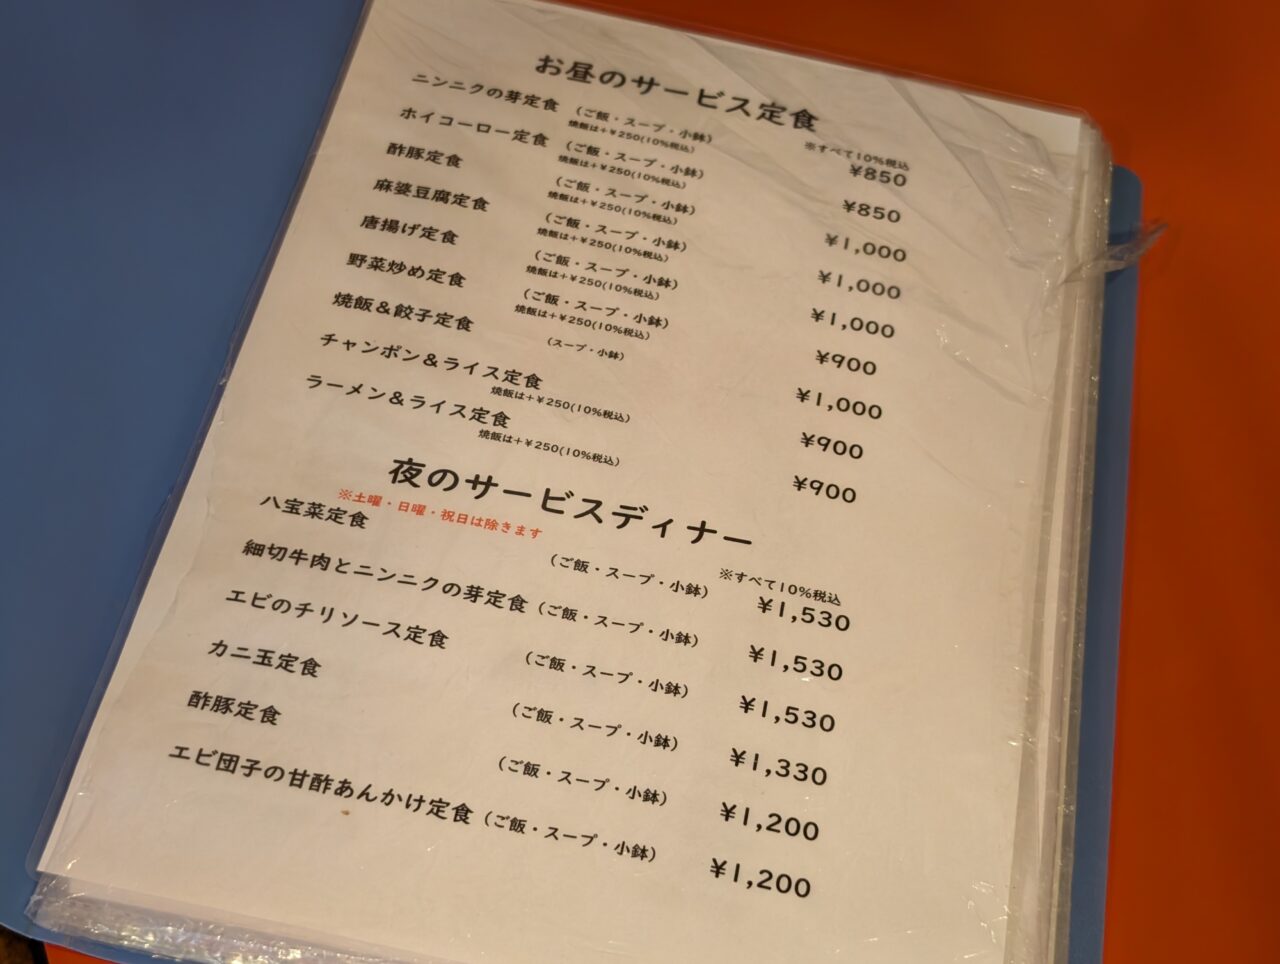 お昼のサービス定食
※すべて10%税込
ニンニクの芽定食 (ご飯・スープ・小鉢) ¥850
焼飯は+¥250(10%税込)
ホイコーロー定食 (ご飯・スープ・小鉢) ¥850
焼飯は+¥250(10%税込)
酢豚定食 (ご飯・スープ・小鉢) ¥1,000
焼飯は+¥250(10%税込)
麻婆豆腐定食 (ご飯・スープ・小鉢) ¥1,000
焼飯は+¥250(10%税込)
唐揚げ定食 (ご飯・スープ・小鉢) ¥1,000
焼飯は+¥250(10%税込)
野菜炒め定食 (ご飯・スープ・小鉢) ¥900
焼飯は+¥250(10%税込)
焼飯&餃子定食 (スープ・小鉢) ¥1,000
チャンポン&ライス定食 ¥900
焼飯は+¥250(10%税込)
ラーメン&ライス定食 ¥900
焼飯は+¥250(10%税込)
夜のサービスディナー
※土曜・日曜・祝日は除きます
※すべて10%税込
八宝菜定食 (ご飯・スープ・小鉢) ¥1,530
細切牛肉とニンニクの芽定食 (ご飯・スープ・小鉢) ¥1,530
エビのチリソース定食 (ご飯・スープ・小鉢) ¥1,530
カニ玉定食 (ご飯・スープ・小鉢) ¥1,330
酢豚定食 (ご飯・スープ・小鉢) ¥1,200
エビ団子の甘酢あんかけ定食 (ご飯・スープ・小鉢) ¥1,200